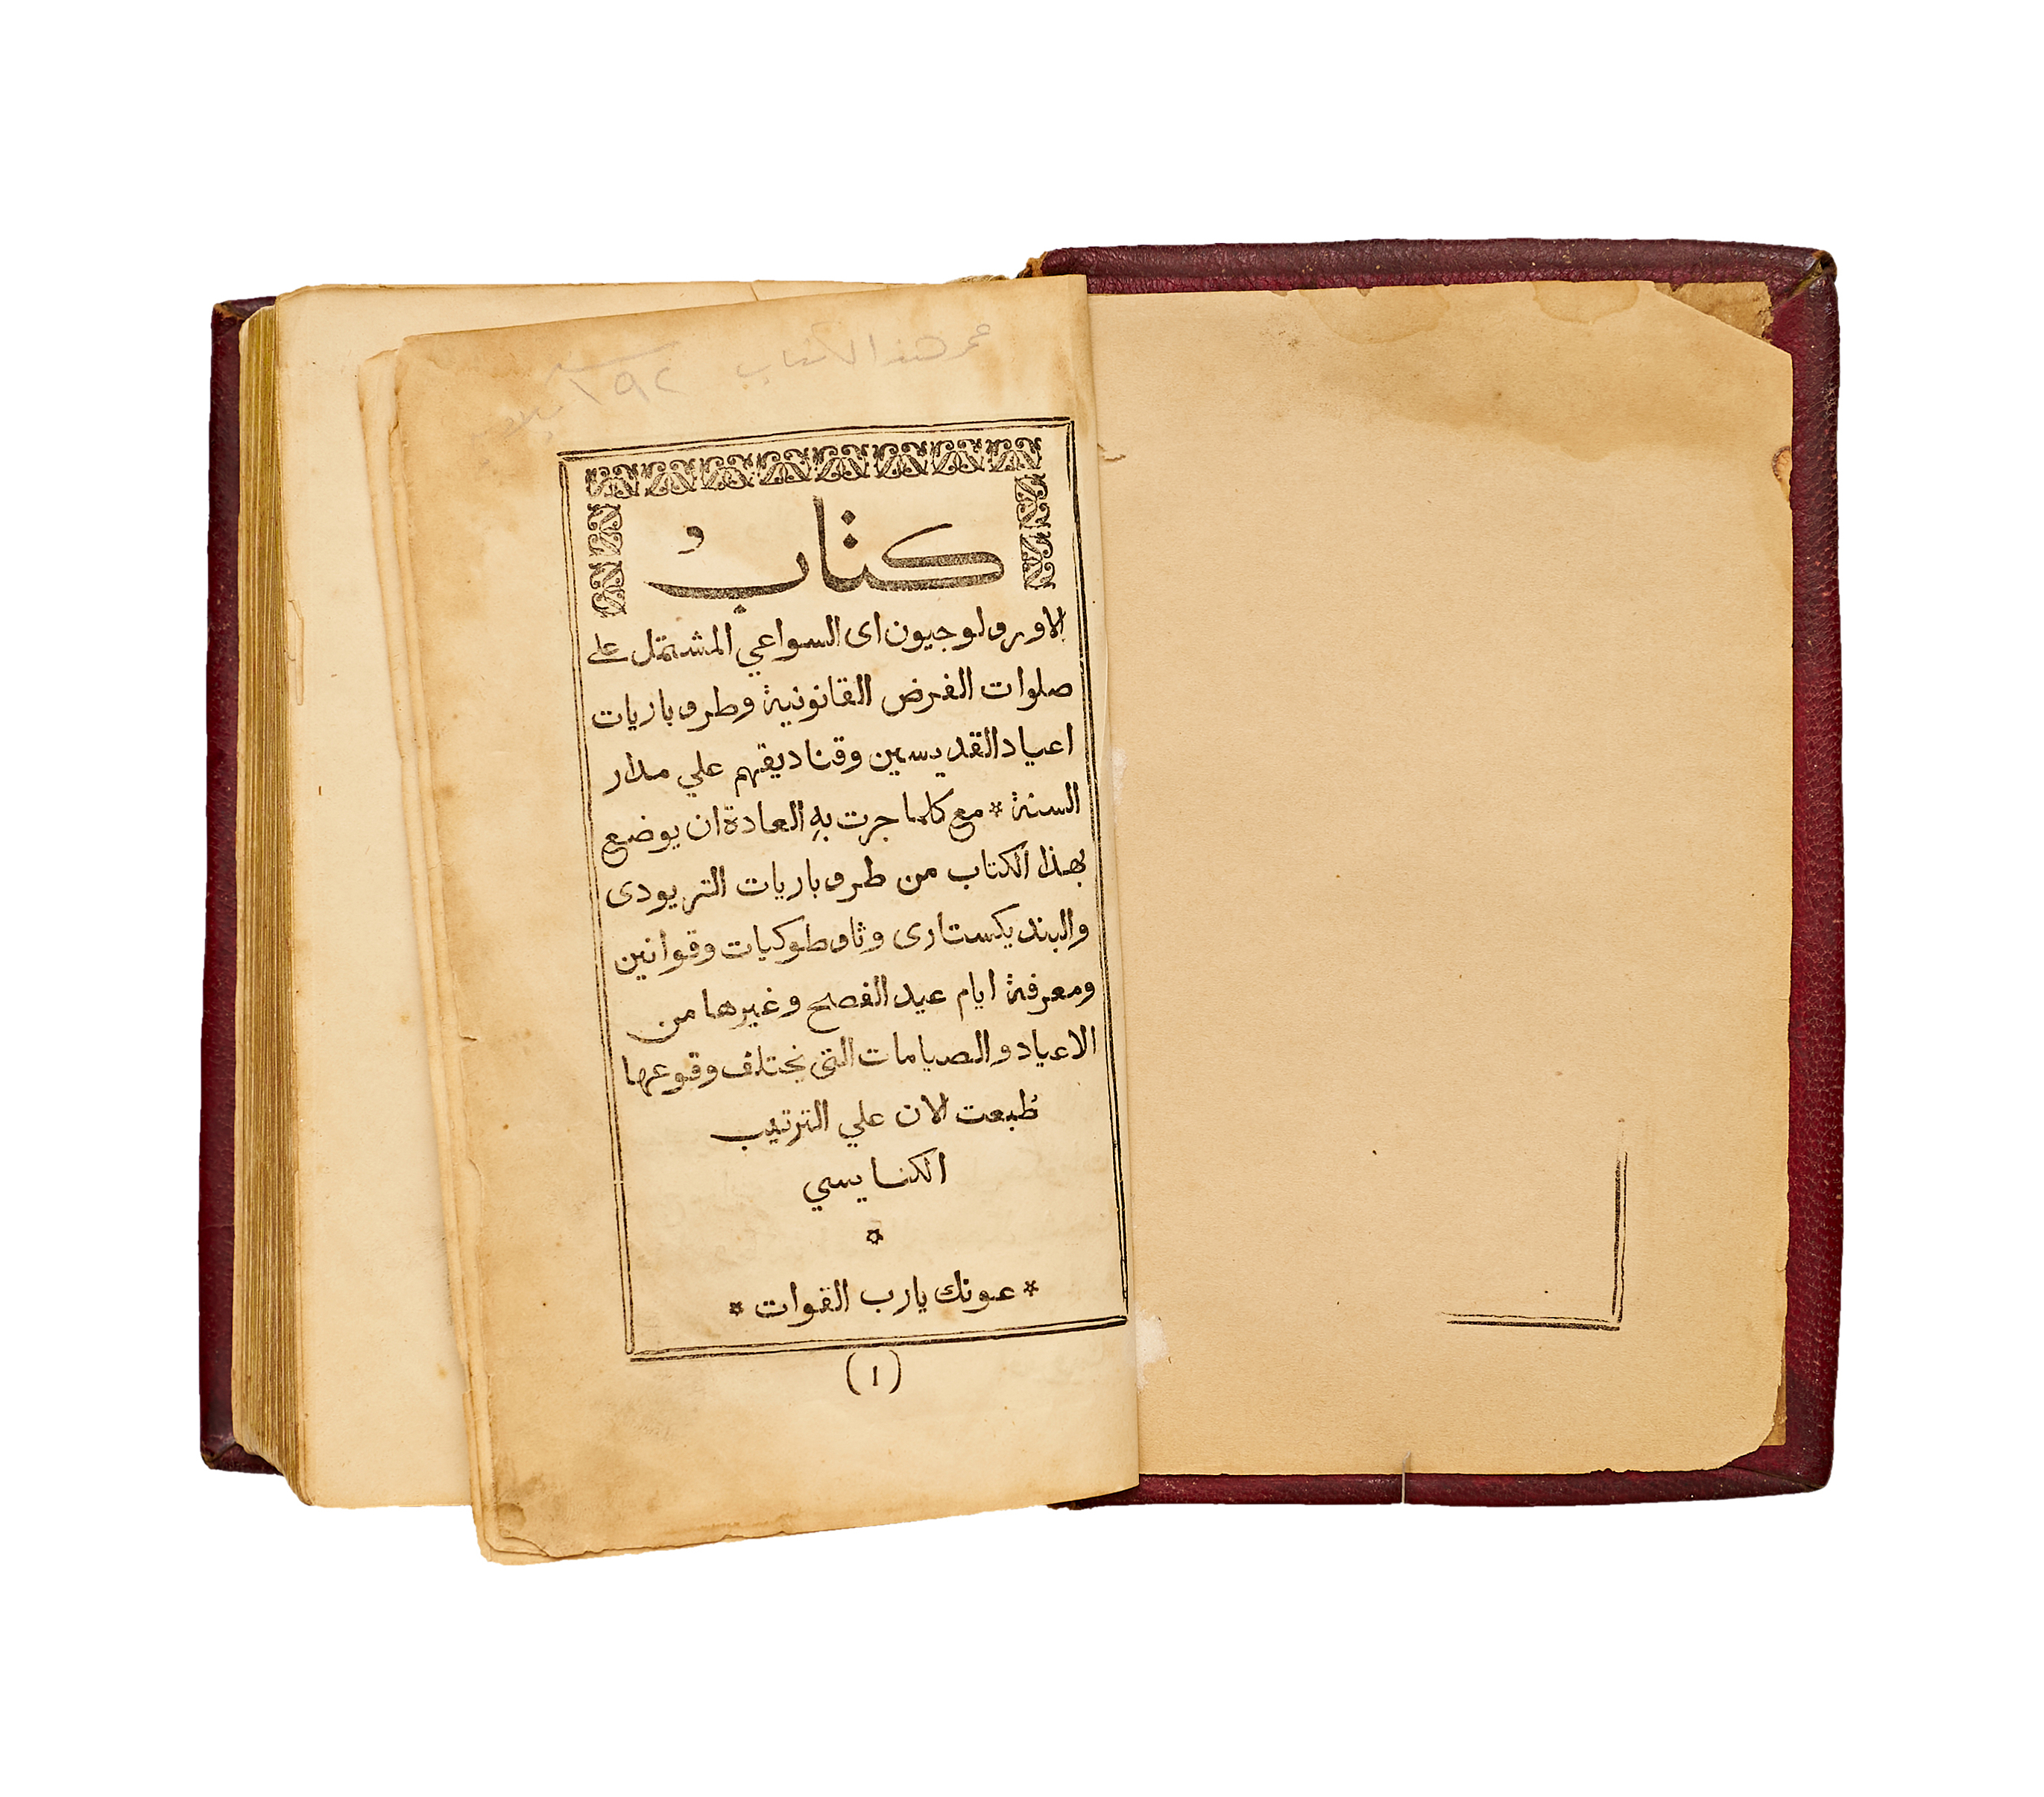 عمر هذا الكتاب
سنة ١٩٢
كتابُ
الاورولوجيون اى السواعي المشتمل على
صلوات الفرض القانونية وطروباريات
اعياد القديسين وقناديقهم علي مدار
السنة * مع كلما جرت بهِ العادة ان يوضع
بهذا الكتاب من طروباريات التريودى
والبنديكستارى وثاوطوكيات وقوانين
ومعرفة ايام عيد الفصح وغيرها من
الاعياد والصيامات التى يختلف وقوعها
طُبعت الان علي الترتيب
الكنايسي
*
* عونك يارب القوات *
(١)